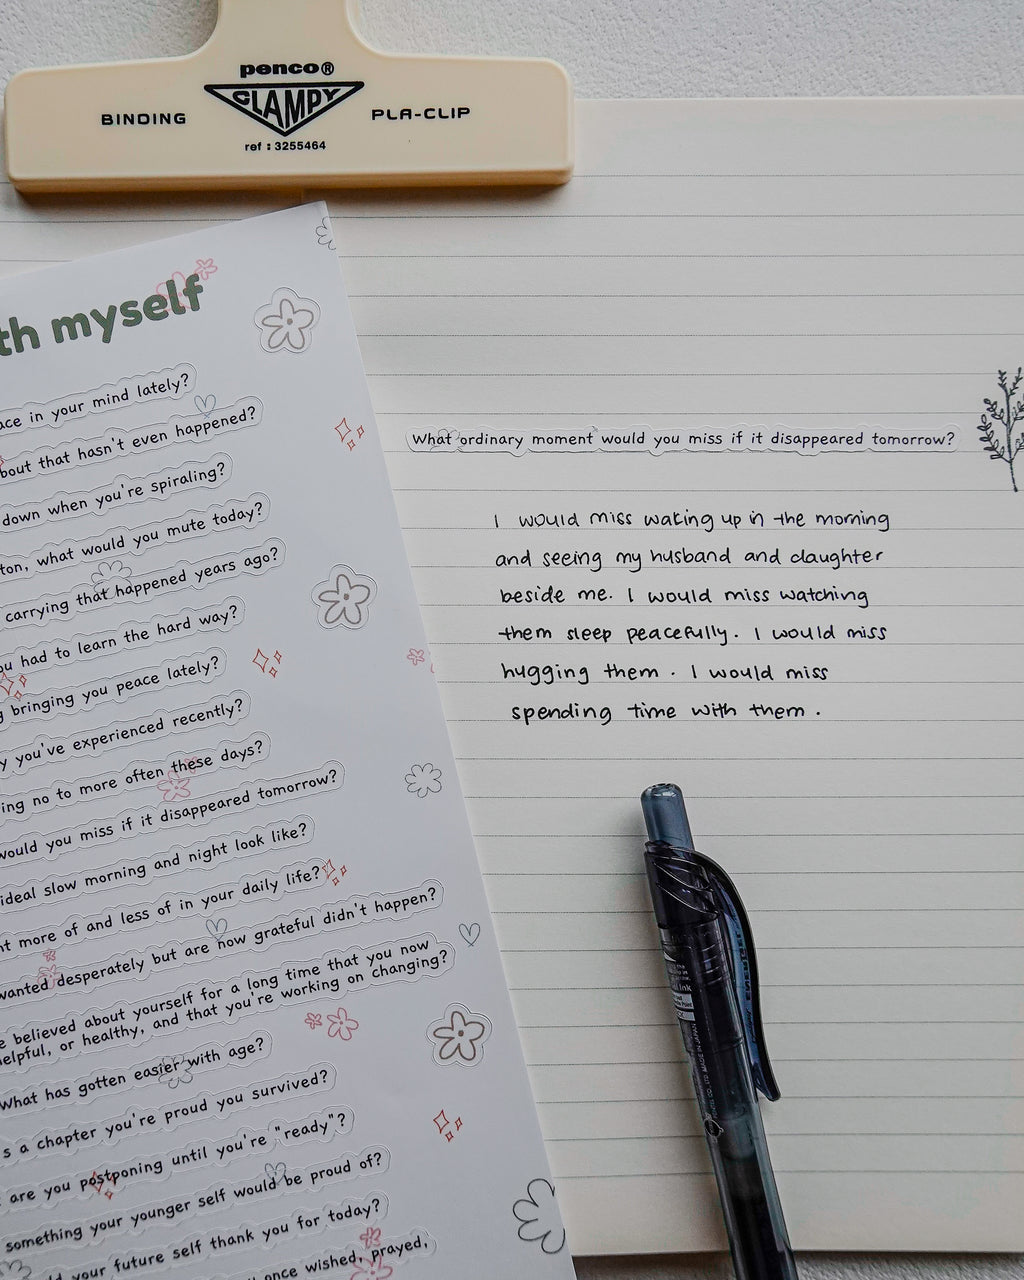 penco®
CLAMPY
BINDING
PLA-CLIP
ref : 3255464
th myself
ace in your mind lately?
bout that hasn't even happened?
down when you're spiraling?
ton, what would you mute today?
carrying that happened years ago?
ou had to learn the hard way?
g bringing you peace lately?
y you've experienced recently?
ing no to more often these days?
would you miss if it disappeared tomorrow?
ideal slow morning and night look like?
nt more of and less of in your daily life?
wanted desperately but are now grateful didn't happen?
e believed about yourself for a long time that you now
helpful, or healthy, and that you're working on changing?
What has gotten easier with age?
s a chapter you're proud you survived?
are you postponing until you're "ready"?
something your younger self would be proud of?
ld your future self thank you for today?
once wished, prayed,
What ordinary moment would you miss if it disappeared tomorrow?
I would miss waking up in the morning
and seeing my husband and daughter
beside me. I would miss watching
them sleep peacefully. I would miss
hugging them. I would miss
spending time with them.
MADE IN JAPAN